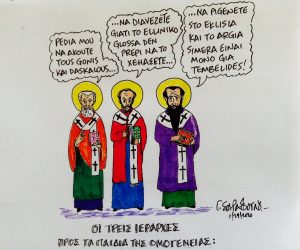 PEDIA MOU
NA AKOUTE
TOUS GONIS
KAI DASKALOUS...
...NA DIAVEZETE
GIATI TO ELLINIKO
GLOSSA DEN
PREPI NA TO
XEHAZETE...
...NA PIGENETE
STO EKLISIA
KAI TO ARGIA
SIMERA EINAI
MONO GIA
TEMBELIDES!
ΟΙ ΤΡΕΙΣ ΙΕΡΑΡΧΕΣ
ΠΡΟΣ ΤΑ ΠΑΙΔΙΑ ΤΗΣ ΟΜΟΓΕΝΕΙΑΣ: